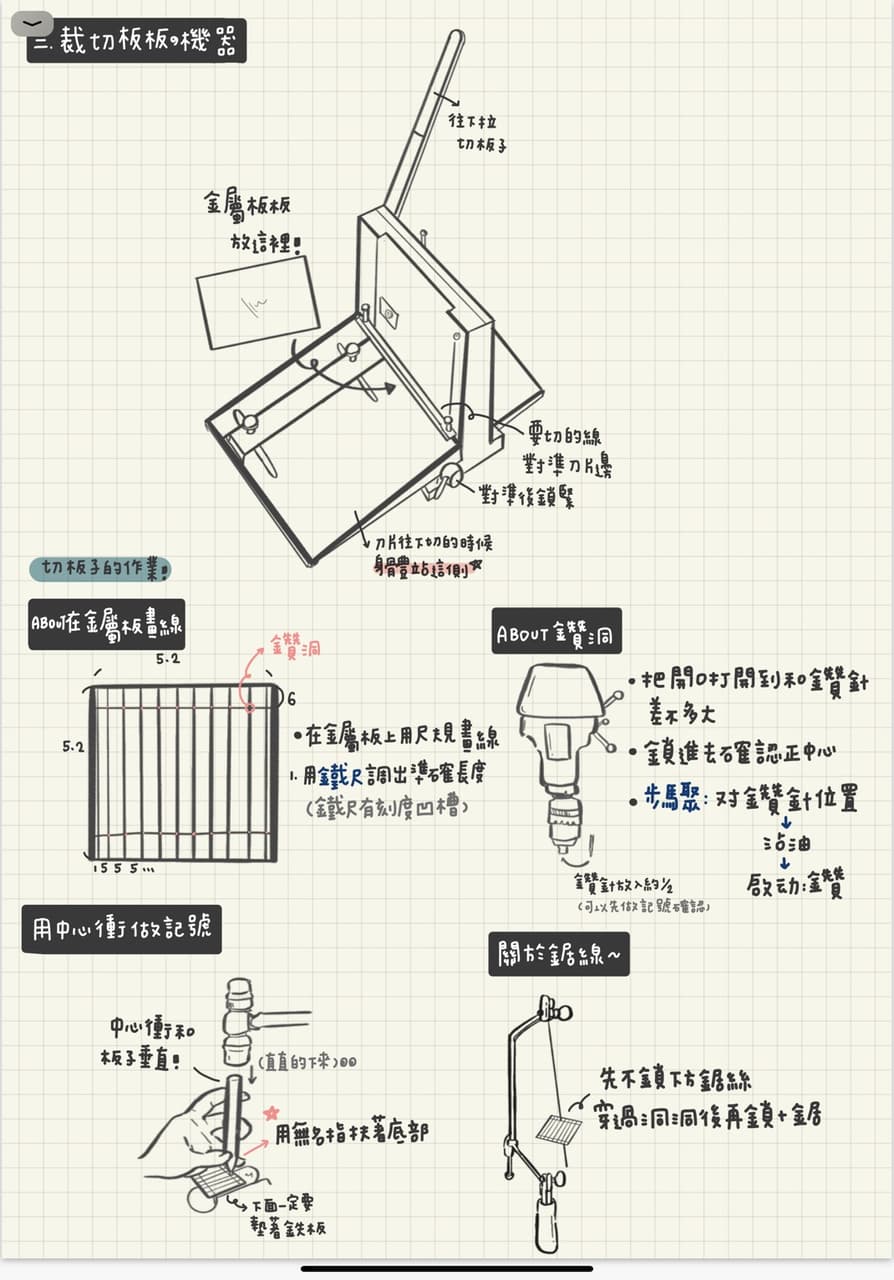 三. 裁切板板の機器
往下拉
切板子
金屬板板
放這裡!
要切的線
對準刀片邊
對準後鎖緊
刀片往下切的時候
身體站這側
切板子的作業!
ABOUT在金屬板畫線
5.2
鑽洞
6
5.2
1 5 5 5 ...
•在金屬板上用尺規畫線
1. 用鐵尺調出準確長度
(鐵尺有刻度凹槽)
ABOUT 鑽洞
•把開口打開到和鑽針
差不多大
•鎖進去確認正中心
•步驟: 对鑽針位置
↓
沾油
↓
啟动:鑽
鑽針放入約1/2
(可以先做記號確認)
用中心衝做記號
中心衝和
板子垂直!
(直直的下來)
用無名指扶著底部
下面一定要
墊著鉄板
關於鋸線~
先不鎖下方鋸絲
穿過洞洞後再鎖+鋸